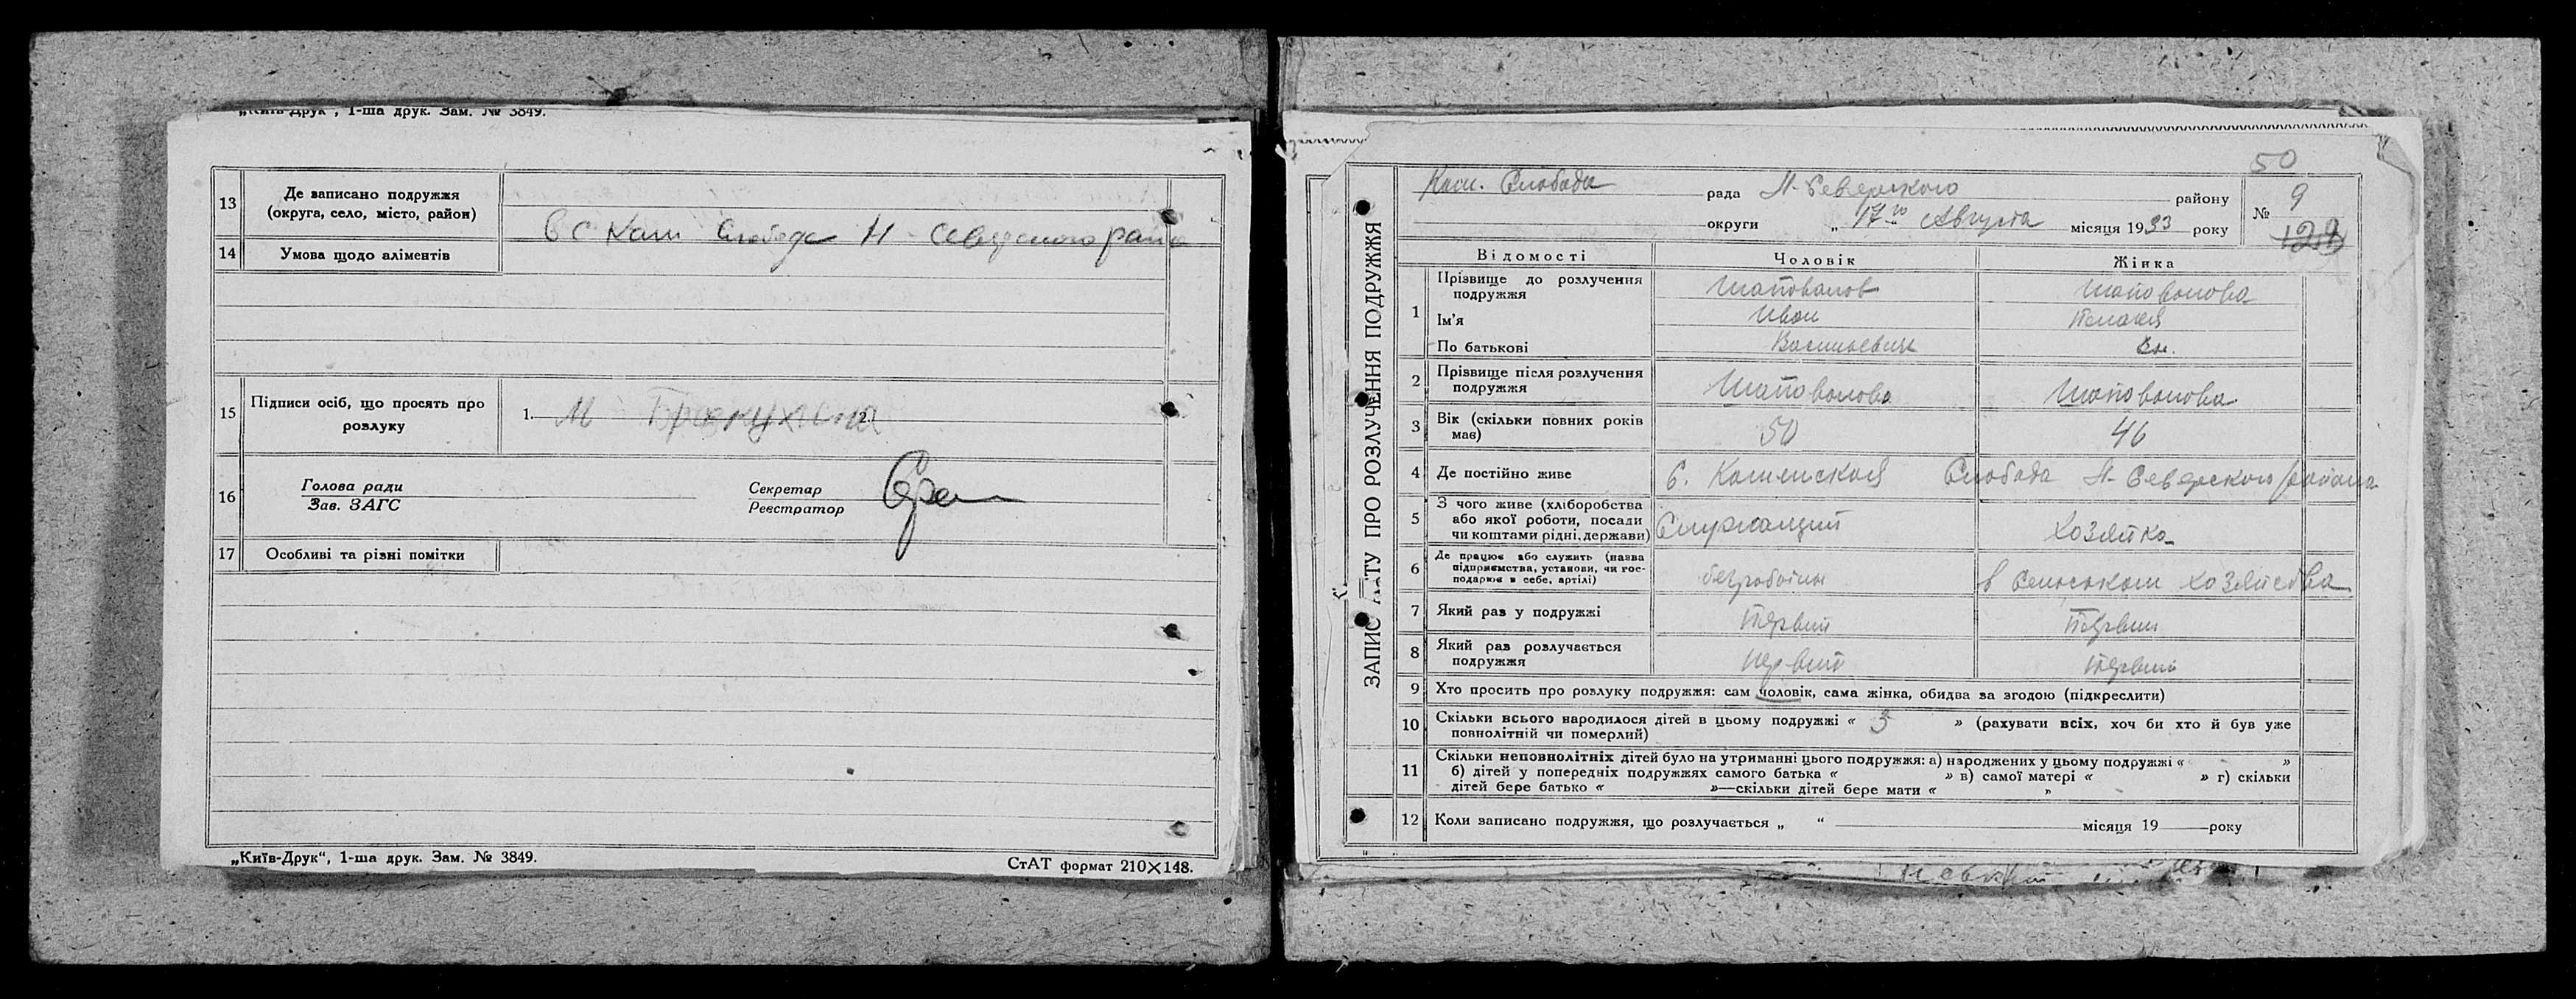 „Київ-Друк", 1-ша друк. Зам. № 3849.
13 Де записано подружжя
(округа, село, місто, район)
в с Кам Слободе Н-Северского райо
14 Умова щодо аліментів
15 Підписи осіб, що просять про
розлуку
1. М 2.
16 Голова ради
Зав. ЗАГС
Секретар
Реєстратор
17 Особливі та різні помітки
„Київ-Друк", 1-ша друк. Зам. № 3849.
СтАТ формат 210×148.
ЗАПИС АКТУ ПРО РОЗЛУЧЕННЯ ПОДРУЖЖЯ
50
Кам. Слобода рада Н-Северского району
№ 9
округи „17го Августа місяця 1933 року
129
Відомості Чоловік Жінка
1 Прізвище до розлучення
подружжя
Шаповалов Шаповалова
Ім'я Иван Пелагея
По батькові Васильевич
2 Прізвище після розлучення
подружжя
Шаповалова Шаповалова
3 Вік (скільки повних років
має)
50 46
4 Де постійно живе С. Каменская Слобода Н-Северского района
5 З чого живе (хліборобства
або якої роботи, посади
чи коштами рідні, держави)
Служащий Хозяйка
6 Де працює або служить (назва
підприємства, установи, чи гос-
подарює в себе, артілі)
безработный в сельском хозяйства
7 Який раз у подружжі Первый Первый
8 Який раз розлучається
подружжя
первый первый
9 Хто просить про розлуку подружжя: сам чоловік, сама жінка, обидва за згодою (підкреслити)
10 Скільки всього народилося дітей в цьому подружжі « 3 » (рахувати всіх, хоч би хто й був уже
повнолітній чи померлий)
11 Скільки неповнолітніх дітей було на утриманні цього подружжя: а) народжених у цьому подружжі « »
б) дітей у попередніх подружжях самого батька « » в) самої матері « » г) скільки
дітей бере батько « »—скільки дітей бере мати « »
12 Коли записано подружжя, що розлучається „ “ місяця 19 року